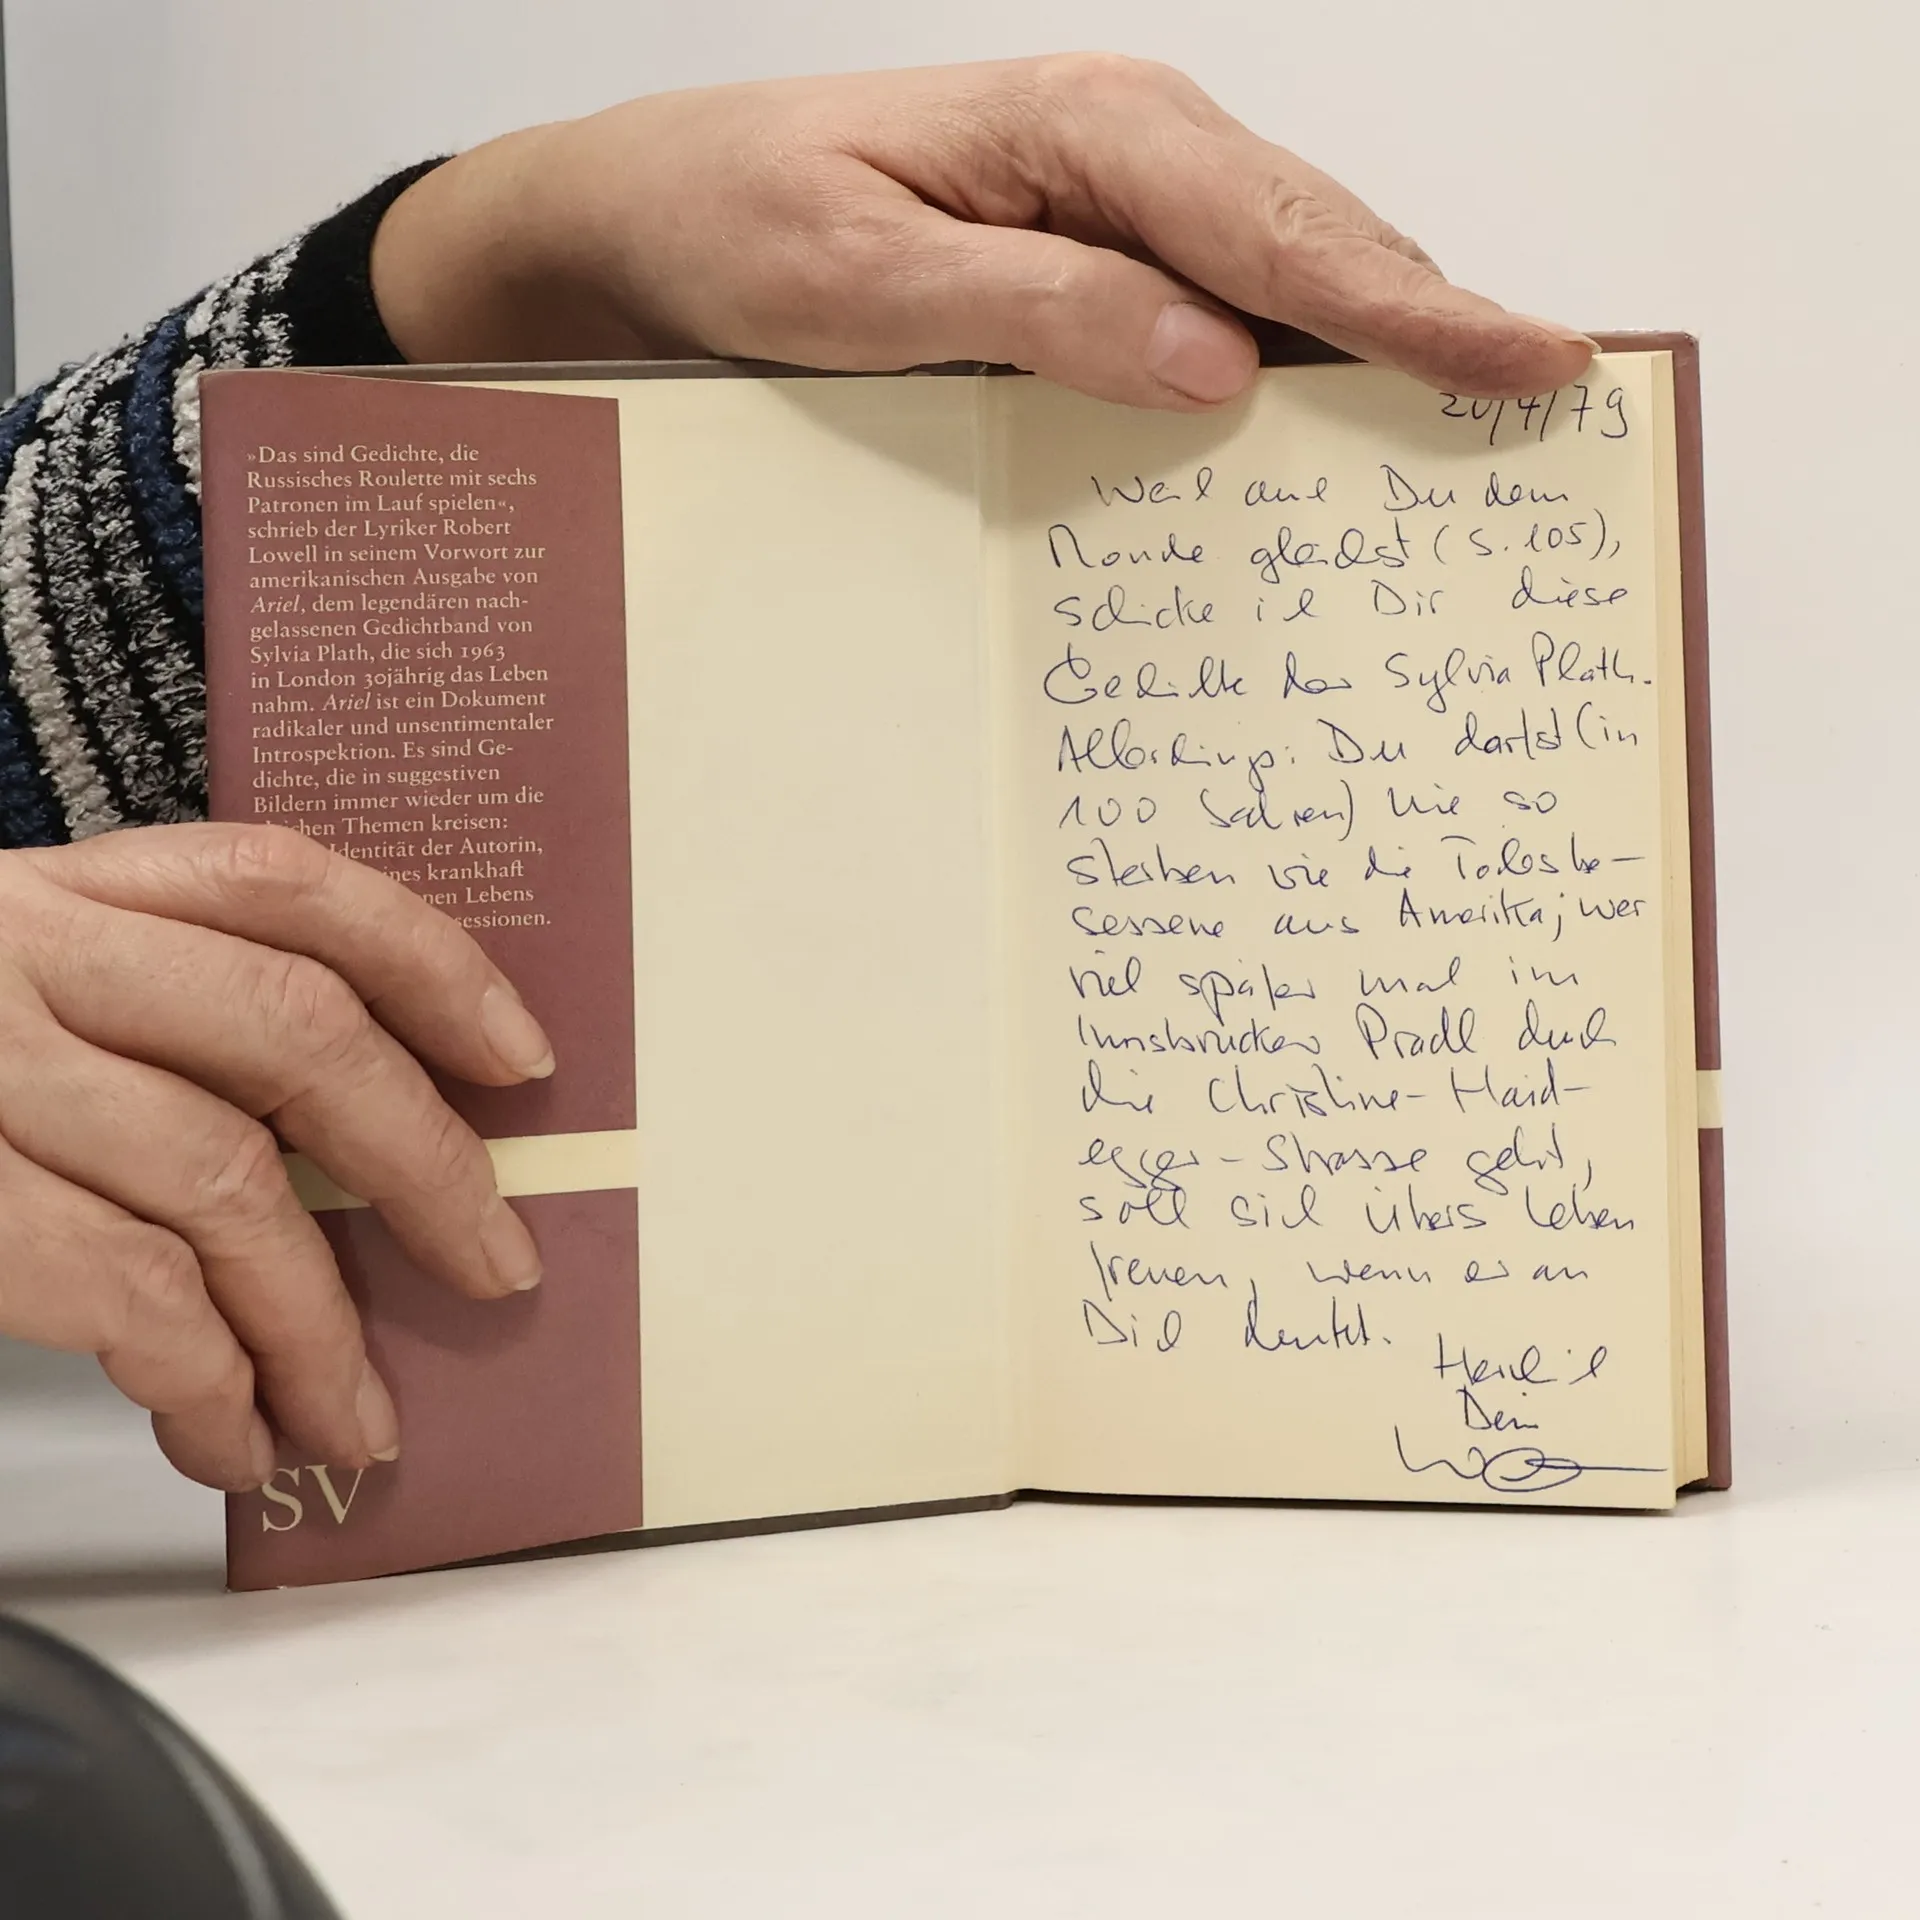 »Das sind Gedichte, die
Russisches Roulette mit sechs
Patronen im Lauf spielen«,
schrieb der Lyriker Robert
Lowell in seinem Vorwort zur
amerikanischen Ausgabe von
Ariel, dem legendären nach-
gelassenen Gedichtband von
Sylvia Plath, die sich 1963
in London 30jährig das Leben
nahm. Ariel ist ein Dokument
radikaler und unsentimentaler
Introspektion. Es sind Ge-
dichte, die in suggestiven
Bildern immer wieder um die
Themen kreisen:
Identität der Autorin,
krankhaft
Lebens
SV
20/4/79
Weil auch Du dem
Monde gleichst (S. 105),
schicke ich Dir diese
Gedichte der Sylvia Plath.
Allerdings: Du darfst (in
100 Jahren) nie so
sterben wie die Todesbe-
sessene aus Amerika; wer
viel später mal im
Innsbrucker Pradl durch
die Christine-Haid-
egger-Strasse geht,
soll sich übers Leben
freuen, wenn er an
Dich denkt.
Herzlich
Dein